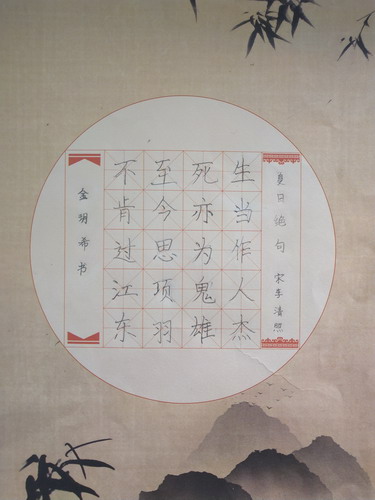 夏日绝句 宋 李清照
生当作人杰
死亦为鬼雄
至今思项羽
不肯过江东
金玥希书